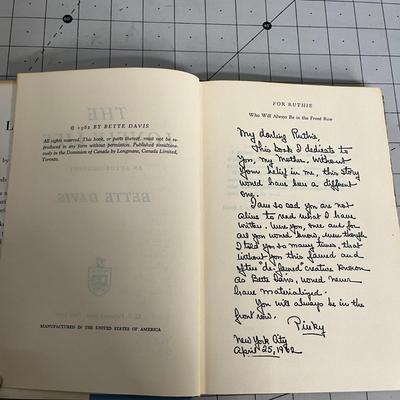 © 1962 BY BETTE DAVIS
All rights reserved. This book, or parts thereof, must not be re-
produced in any form without permission. Published simultane-
ously in the Dominion of Canada by Longmans, Canada Limited,
Toronto.
MANUFACTURED IN THE UNITED STATES OF AMERICA
FOR RUTHIE
Who Will Always Be in the Front Row
My darling Ruthie,
This book I dedicate to
you, my Mother. Without
your belief in me, this story
would have been a different
one.
I am so sad you are not
alive to read what I have
written. Were you, once and for
all you would know, even though
I told you so many times, that
without you this famed and
often "de-famed" creature known
as Bette Davis, would never
have materialized.
You will always be in the
front row.
Pinky
New York City
April 25, 1962
THE
BETTE DAVIS
L